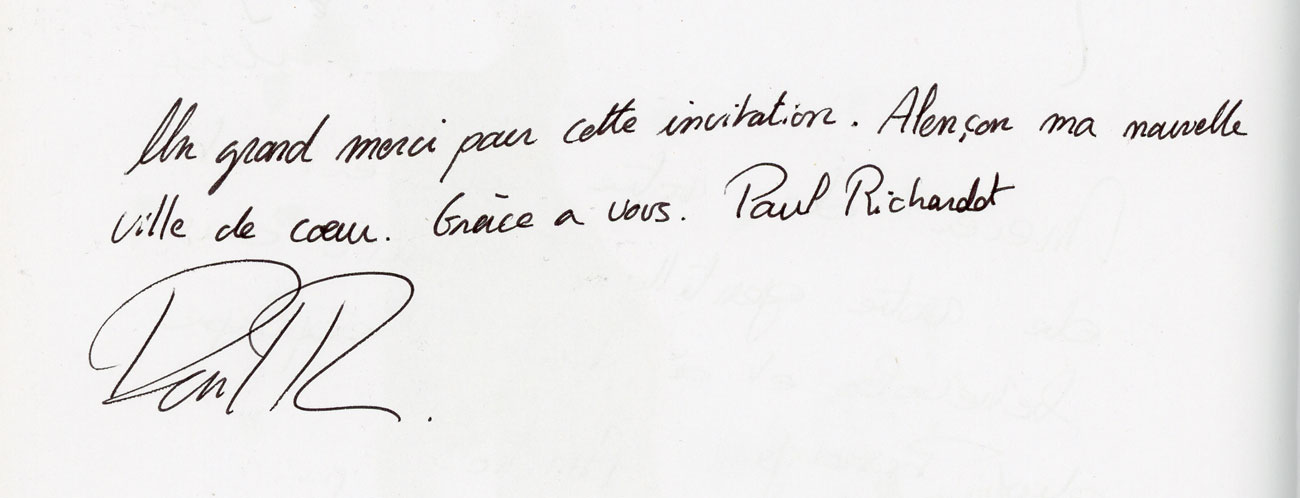 Un grand merci pour cette invitation. Alençon ma nouvelle
ville de cœur. Grâce a vous. Paul Richardot
Paul R.